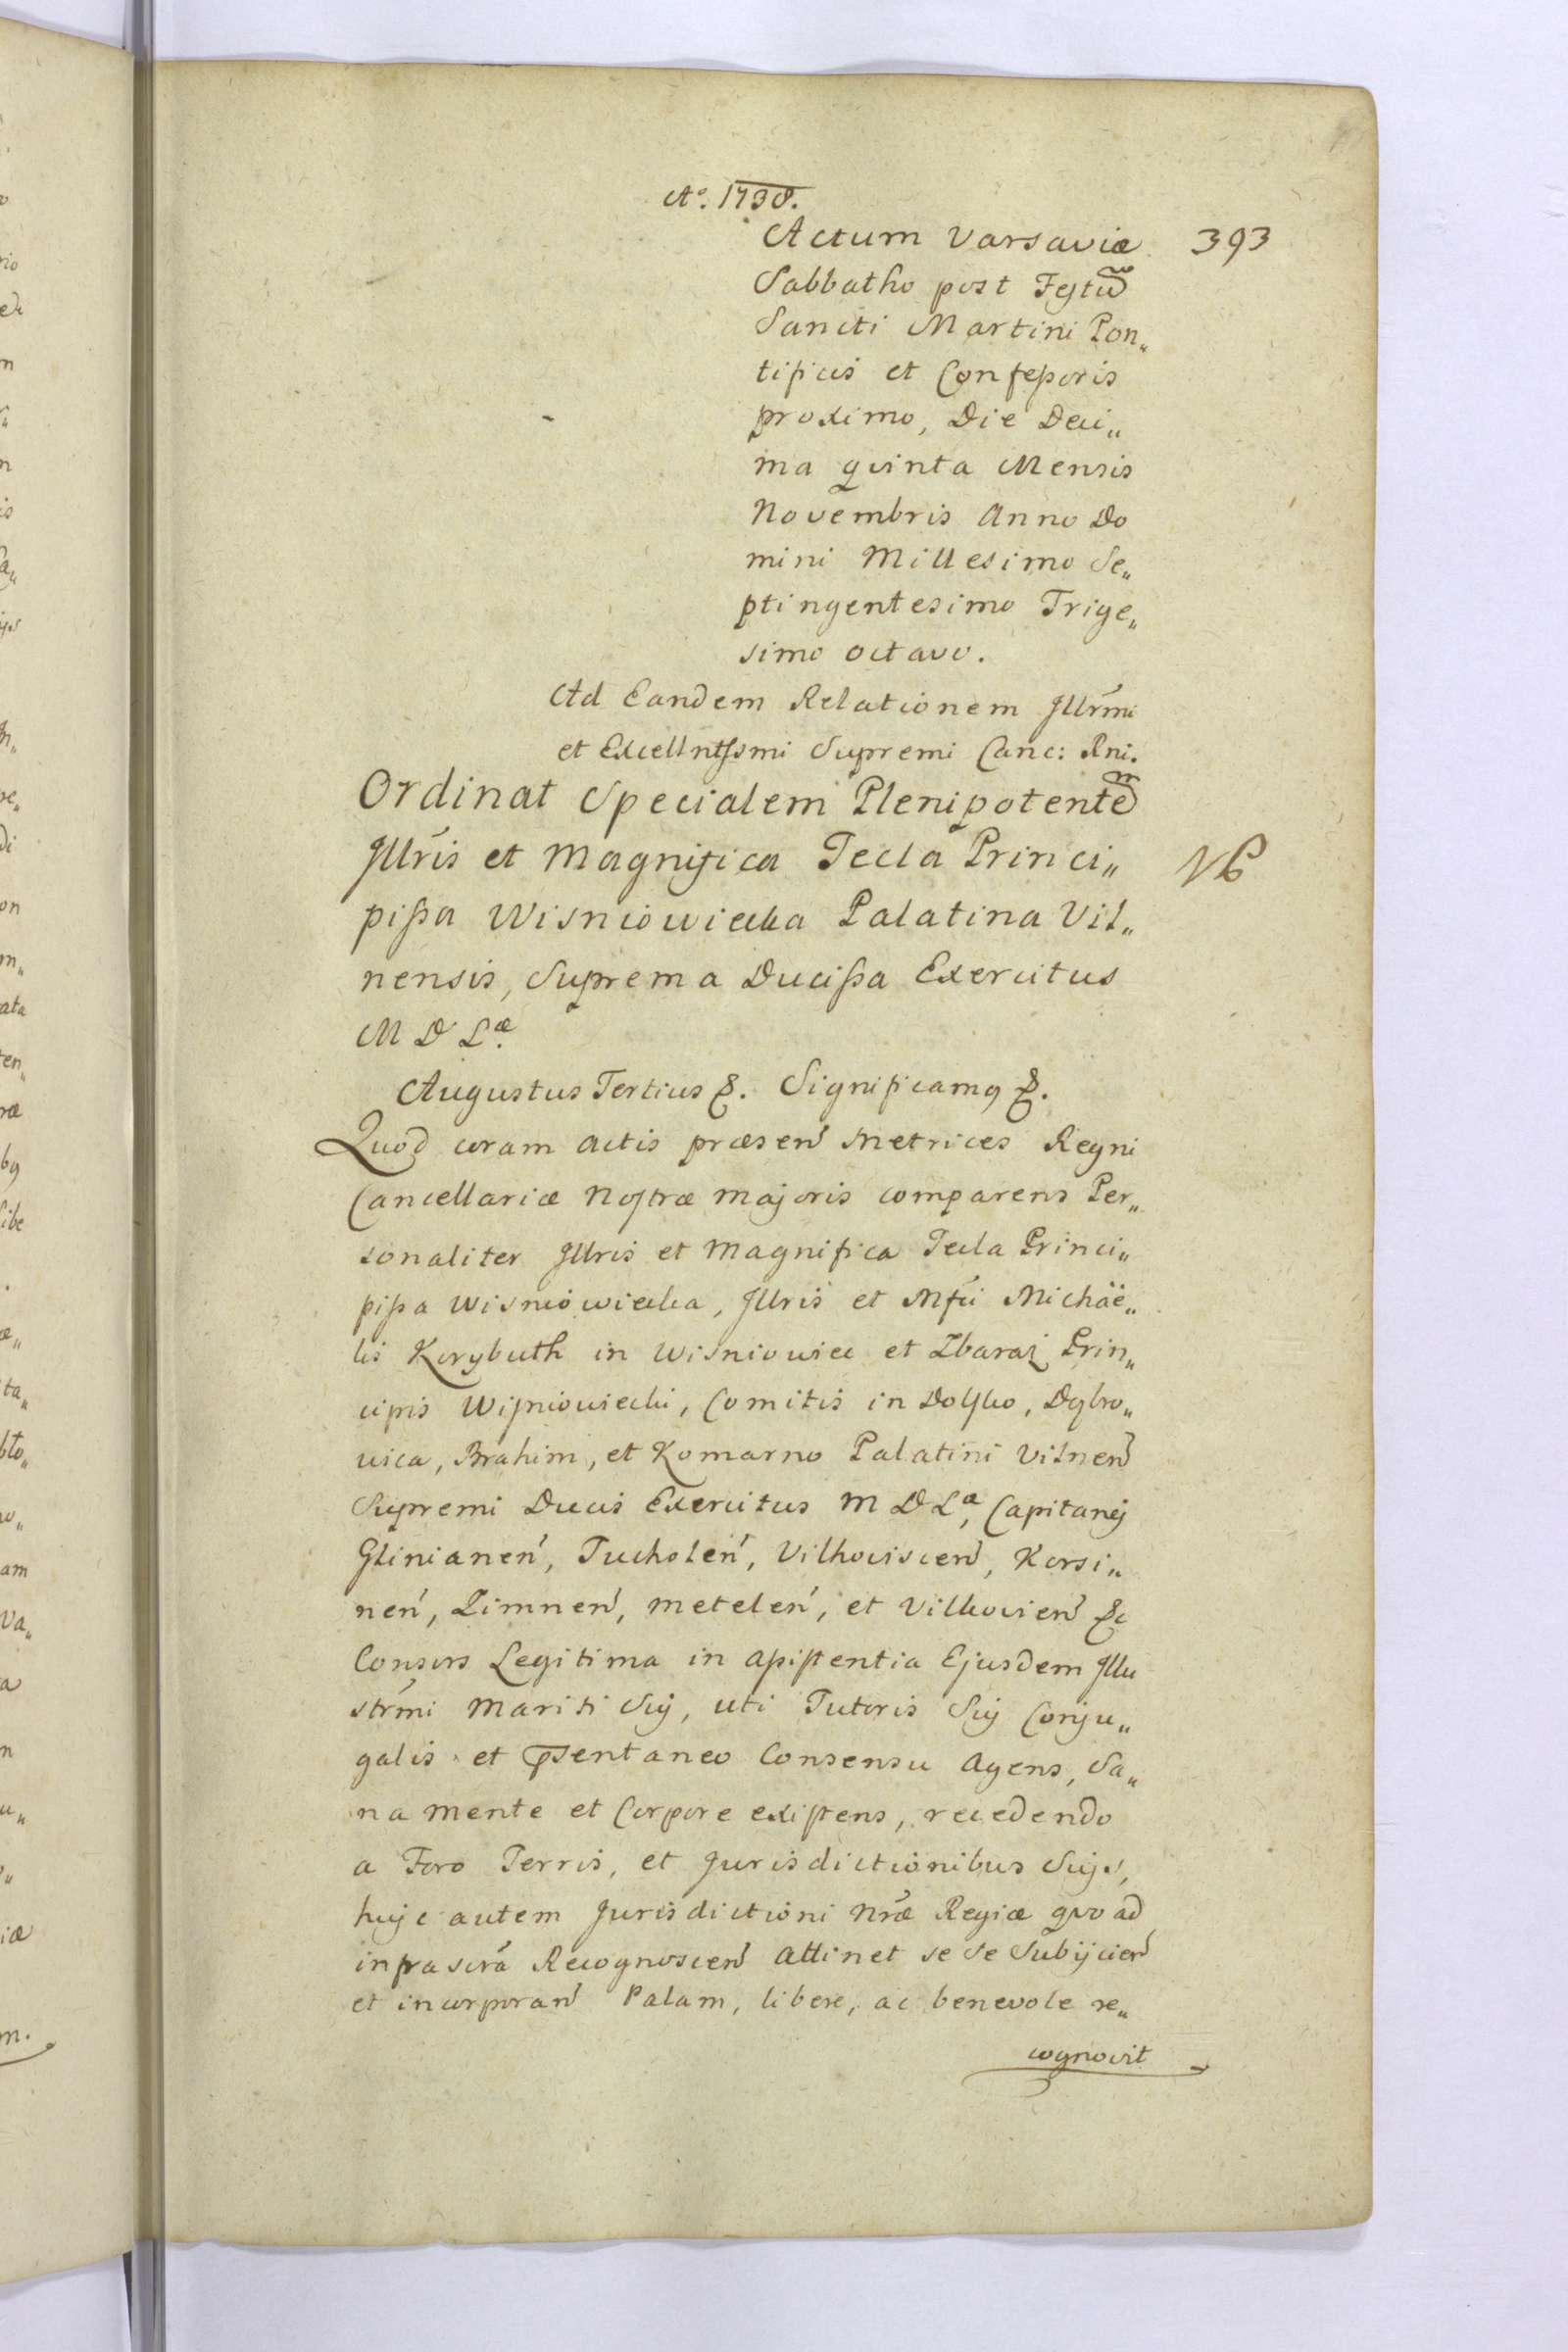 Aº. 1738.
Actum Varsaviæ 393
Sabbatho post Festu͠m
Sancti Martini Pon„
tificis et Confeßoris
proximo, Die Deci„
ma qvinta Mensis
Novembris Anno Do
mini Millesimo Se„
ptingentesimo Trige„
simo octavo.
Ad Eandem Relationem Jllr͠mi
et Excellntssmi Supremi Canc: Rni.
Ordinat Specialem Plenipotente͠m
Jllrís et Magnifica Tecla Princi„ NB
pißa Wisniowiecka Palatina Vil„
nensis, Suprema Ducißa Exercitus
M D Lᵃᵉ.
Augustus Tertius &. Significamq &.
Quod coram Actis præsen̄ Metrices Regni
Cancellariæ Nostræ Majoris comparens Per„
sonaliter Jllris et Magnifica Tecla Princi„
pißa Wisniowiecka, Jllris et Mfci Michäe„
lis Korybuth in Wisniowiec et Zbaraż Prin„
cipis Wisniowiecki, Comitis in Dolsko, Dąbro„
vica, Brahim, et Komarno Palatini Vilnen̄
Supremi Ducis Exercitus M D Lᵃᵉ, Capitanej
Glinianen̄, Tucholen̄, Vilkoviscen̄, Korsi„
nen̄, Zimnen̄, Metelen̄, et Vilkovien̄ &c
Consors Legitima in aßistentia Ejusdem Jllu
str͠mi Mariti Sui, uti Tutoris Sui Conju„
galis et p͠sentaneo Consensu Agens, Sa„
na mente et Corpore existens, recedendo
a Foro Terris, et Jurisdictionibus Suis,
huic autem Jurisdictioni Nr͠æ Regiæ qvoad
infrascr͠a Recognoscen̄ attinet se se Subijcien̄
et incorporan̄ Palam, libere, ac benevole re„
cognovit